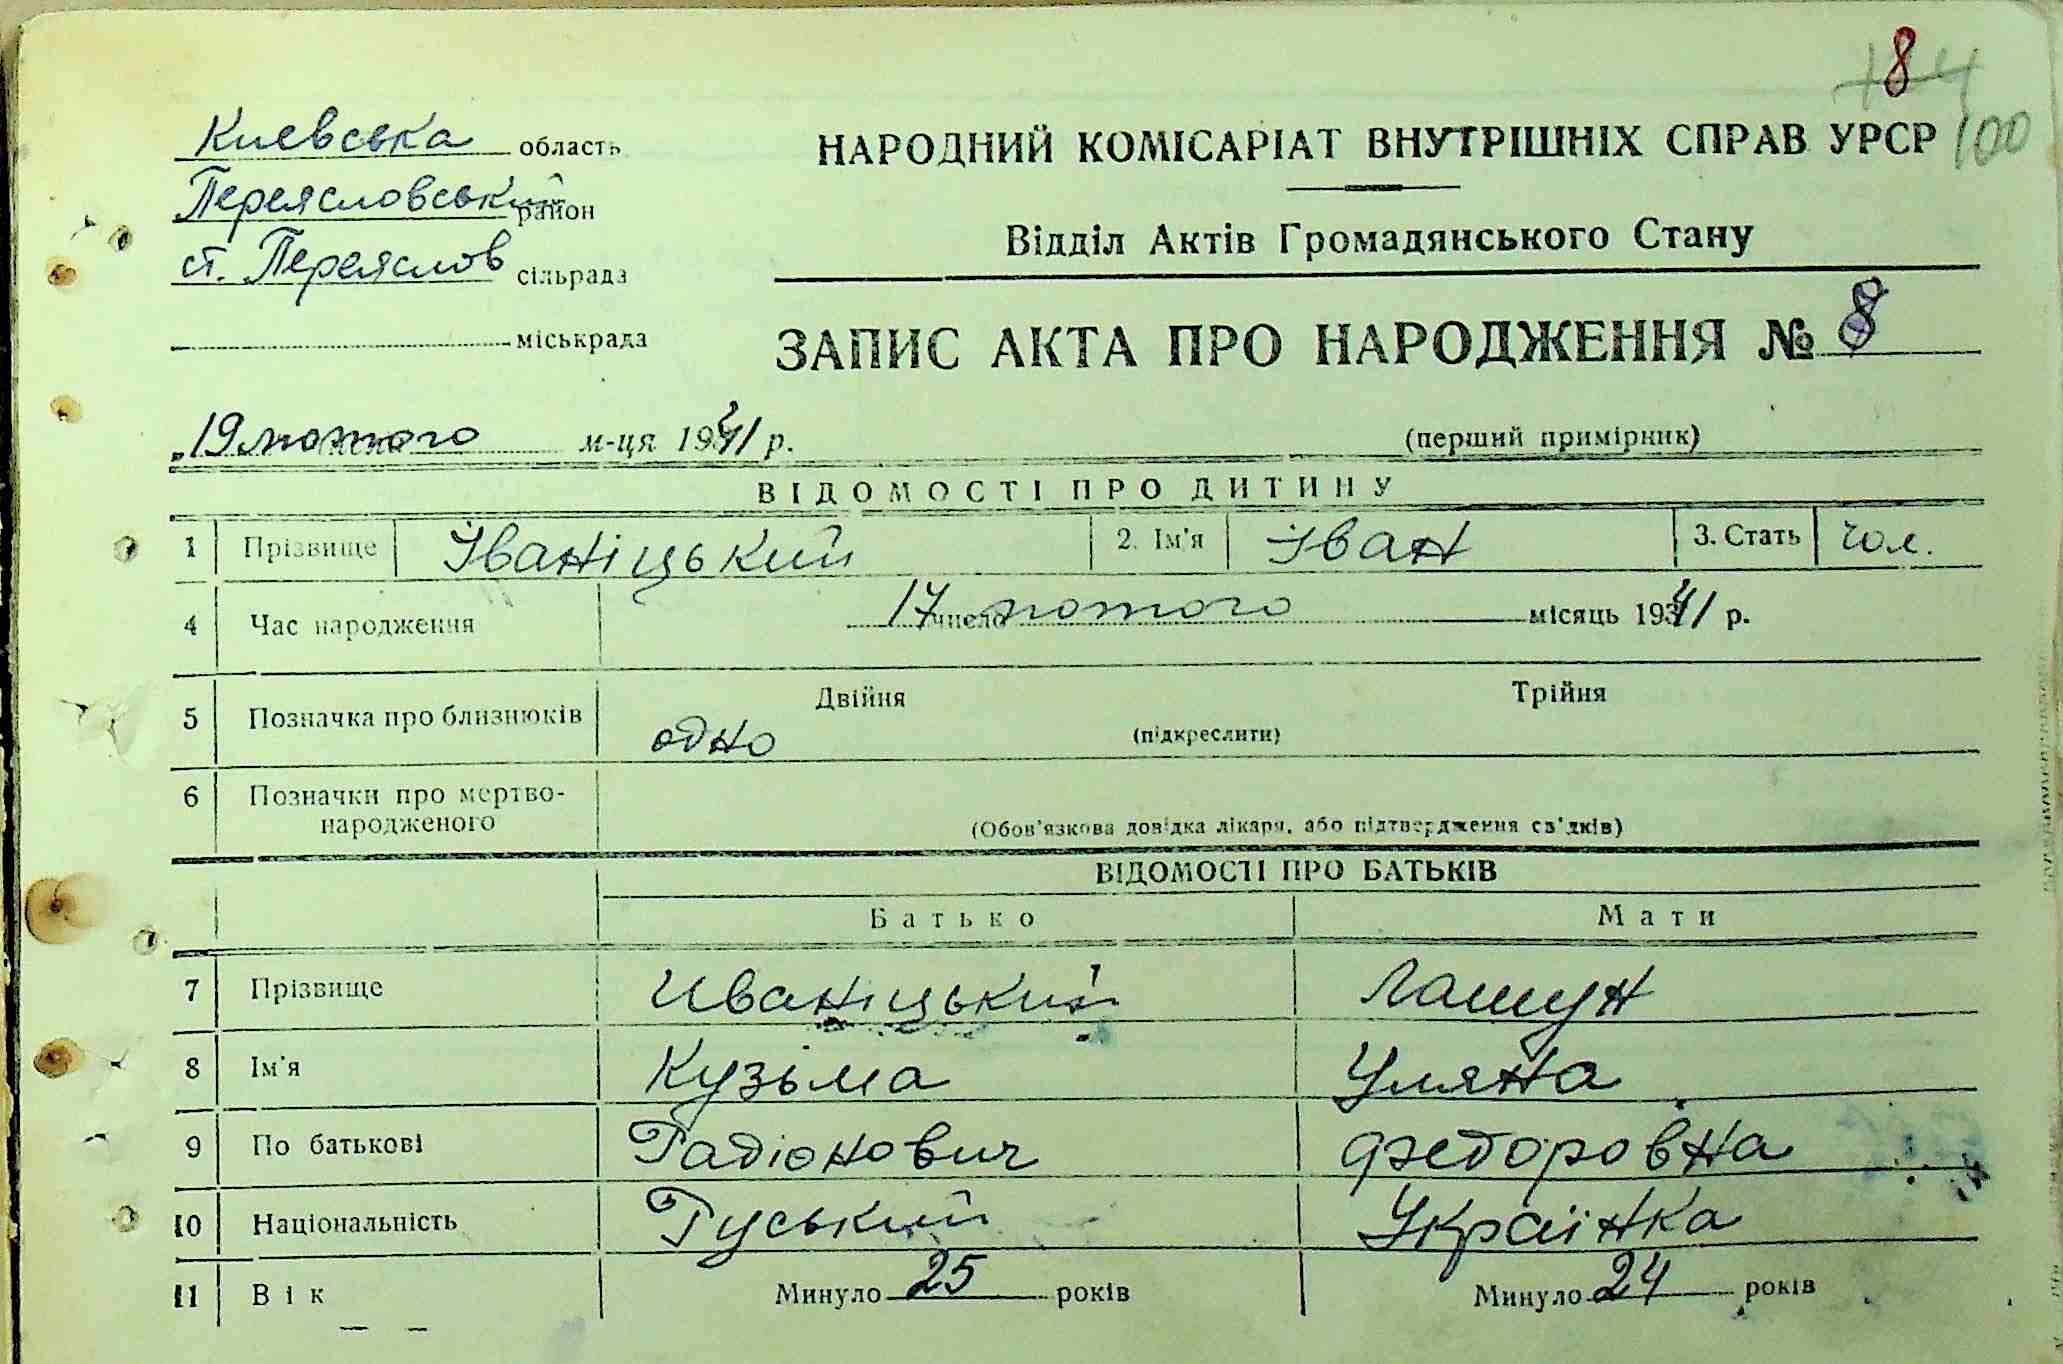 8
100
Киевська область
Переясловський район
ст. Переяслов сільрада
міськрада
НАРОДНИЙ КОМІСАРІАТ ВНУТРІШНІХ СПРАВ УРСР
Відділ Актів Громадянського Стану
ЗАПИС АКТА ПРО НАРОДЖЕННЯ № 8
„19 лютого м-ця 1941 р.
(перший примірник)
ВІДОМОСТІ ПРО ДИТИНУ
1 Прізвище Іваніцький 2. Ім'я Іван 3. Стать чол.
4 Час народження 17 число лютого місяць 1941 р.
5 Позначка про близнюків одно Двійня (підкреслити) Трійня
6 Позначки про мертво-
народженого (Обов'язкова довідка лікаря, або підтвердження св'дків)
ВІДОМОСТІ ПРО БАТЬКІВ
Батько Мати
7 Прізвище Иваніцький Лашун
8 Ім'я Кузьма Уляна
9 По батькові Радіонович Федоровна
10 Національність Руський Українка
11 Вік Минуло 25 років Минуло 24 років